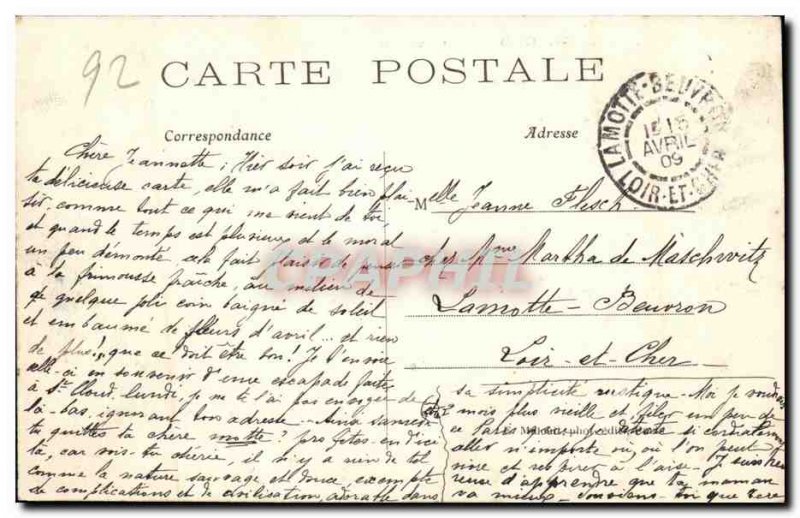 92
CARTE POSTALE
LAMOTTE-BEUVRON
15
AVRIL
09
LOIR-ET-CHER
Correspondance
Adresse
Chère Jeannette, Hier soir j'ai reçu
ta délicieuse carte, elle m'a fait bien plai
sir, comme tout ce qui me vient de toi
et quand le temps est pluvieux et le moral
un peu démonté cela fait plaisir de penser
à ta frimousse fraîche, au milieu de
quelque joli coin baigné de soleil
et embaumé de fleurs d'avril... et rien
de plus! que ce doit être bon! Je t'envoie
celle-ci en souvenir d'une escapade faite
à St Cloud, lundi, je ne te l'ai pas envoyée de
là-bas, ignorant ton adresse
tu quittes ta chère motte? pro fites-en d'ici
là, car vois-tu chérie, il n'y a rien de tel
comme la nature sauvage et douce, exempte
de complications et de civilisation, adorable dans
Melle Jeanne Flesch
chez Mme Martha de Maschwitz
Lamotte-Beuvron
Loir-et-Cher
sa simplicité rustique. Moi je voudrais
mois plus vieille et filer un peu de
ce Paris que je déteste si cordialement
aller n'importe où, où l'on peut
vivre et respirer à l'aise. Je suis heu
reuse d'apprendre que ta maman
va mieux. Souviens-toi que
CPAPHIL